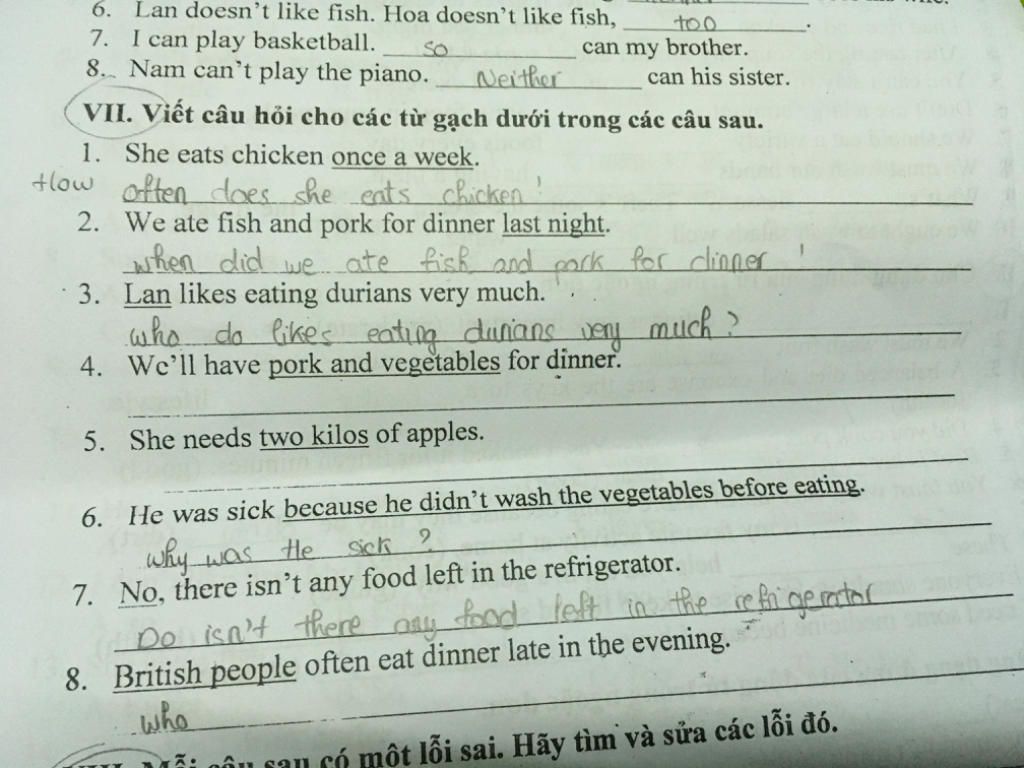 6. Lan doesn't like fish. Hoa doesn't like fish, too.
7. I can play basketball. so can my brother.
8. Nam can't play the piano. Neither can his sister.
VII. Viết câu hỏi cho các từ gạch dưới trong các câu sau.
1. She eats chicken once a week.
How often does she eats chicken !
2. We ate fish and pork for dinner last night.
when did we ate fish and pork for dinner !
3. Lan likes eating durians very much.
who do likes eating durians very much ?
4. We'll have pork and vegetables for dinner.
5. She needs two kilos of apples.
6. He was sick because he didn't wash the vegetables before eating.
why was He sick ?
7. No, there isn't any food left in the refrigerator.
Do isn't there any food left in the refrigerator
8. British people often eat dinner late in the evening.
who
Mỗi câu sau có một lỗi sai. Hãy tìm và sửa các lỗi đó.